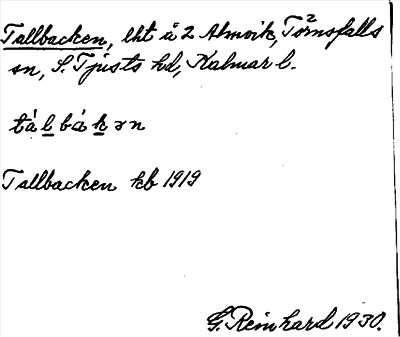 Tallbacken, lht å 2 Almvik, Törnsfalls
sn, S. Tjusts hd, Kalmar l.
tàl bákən
Tallbacken kb 1919
G. Reinhard 1930.